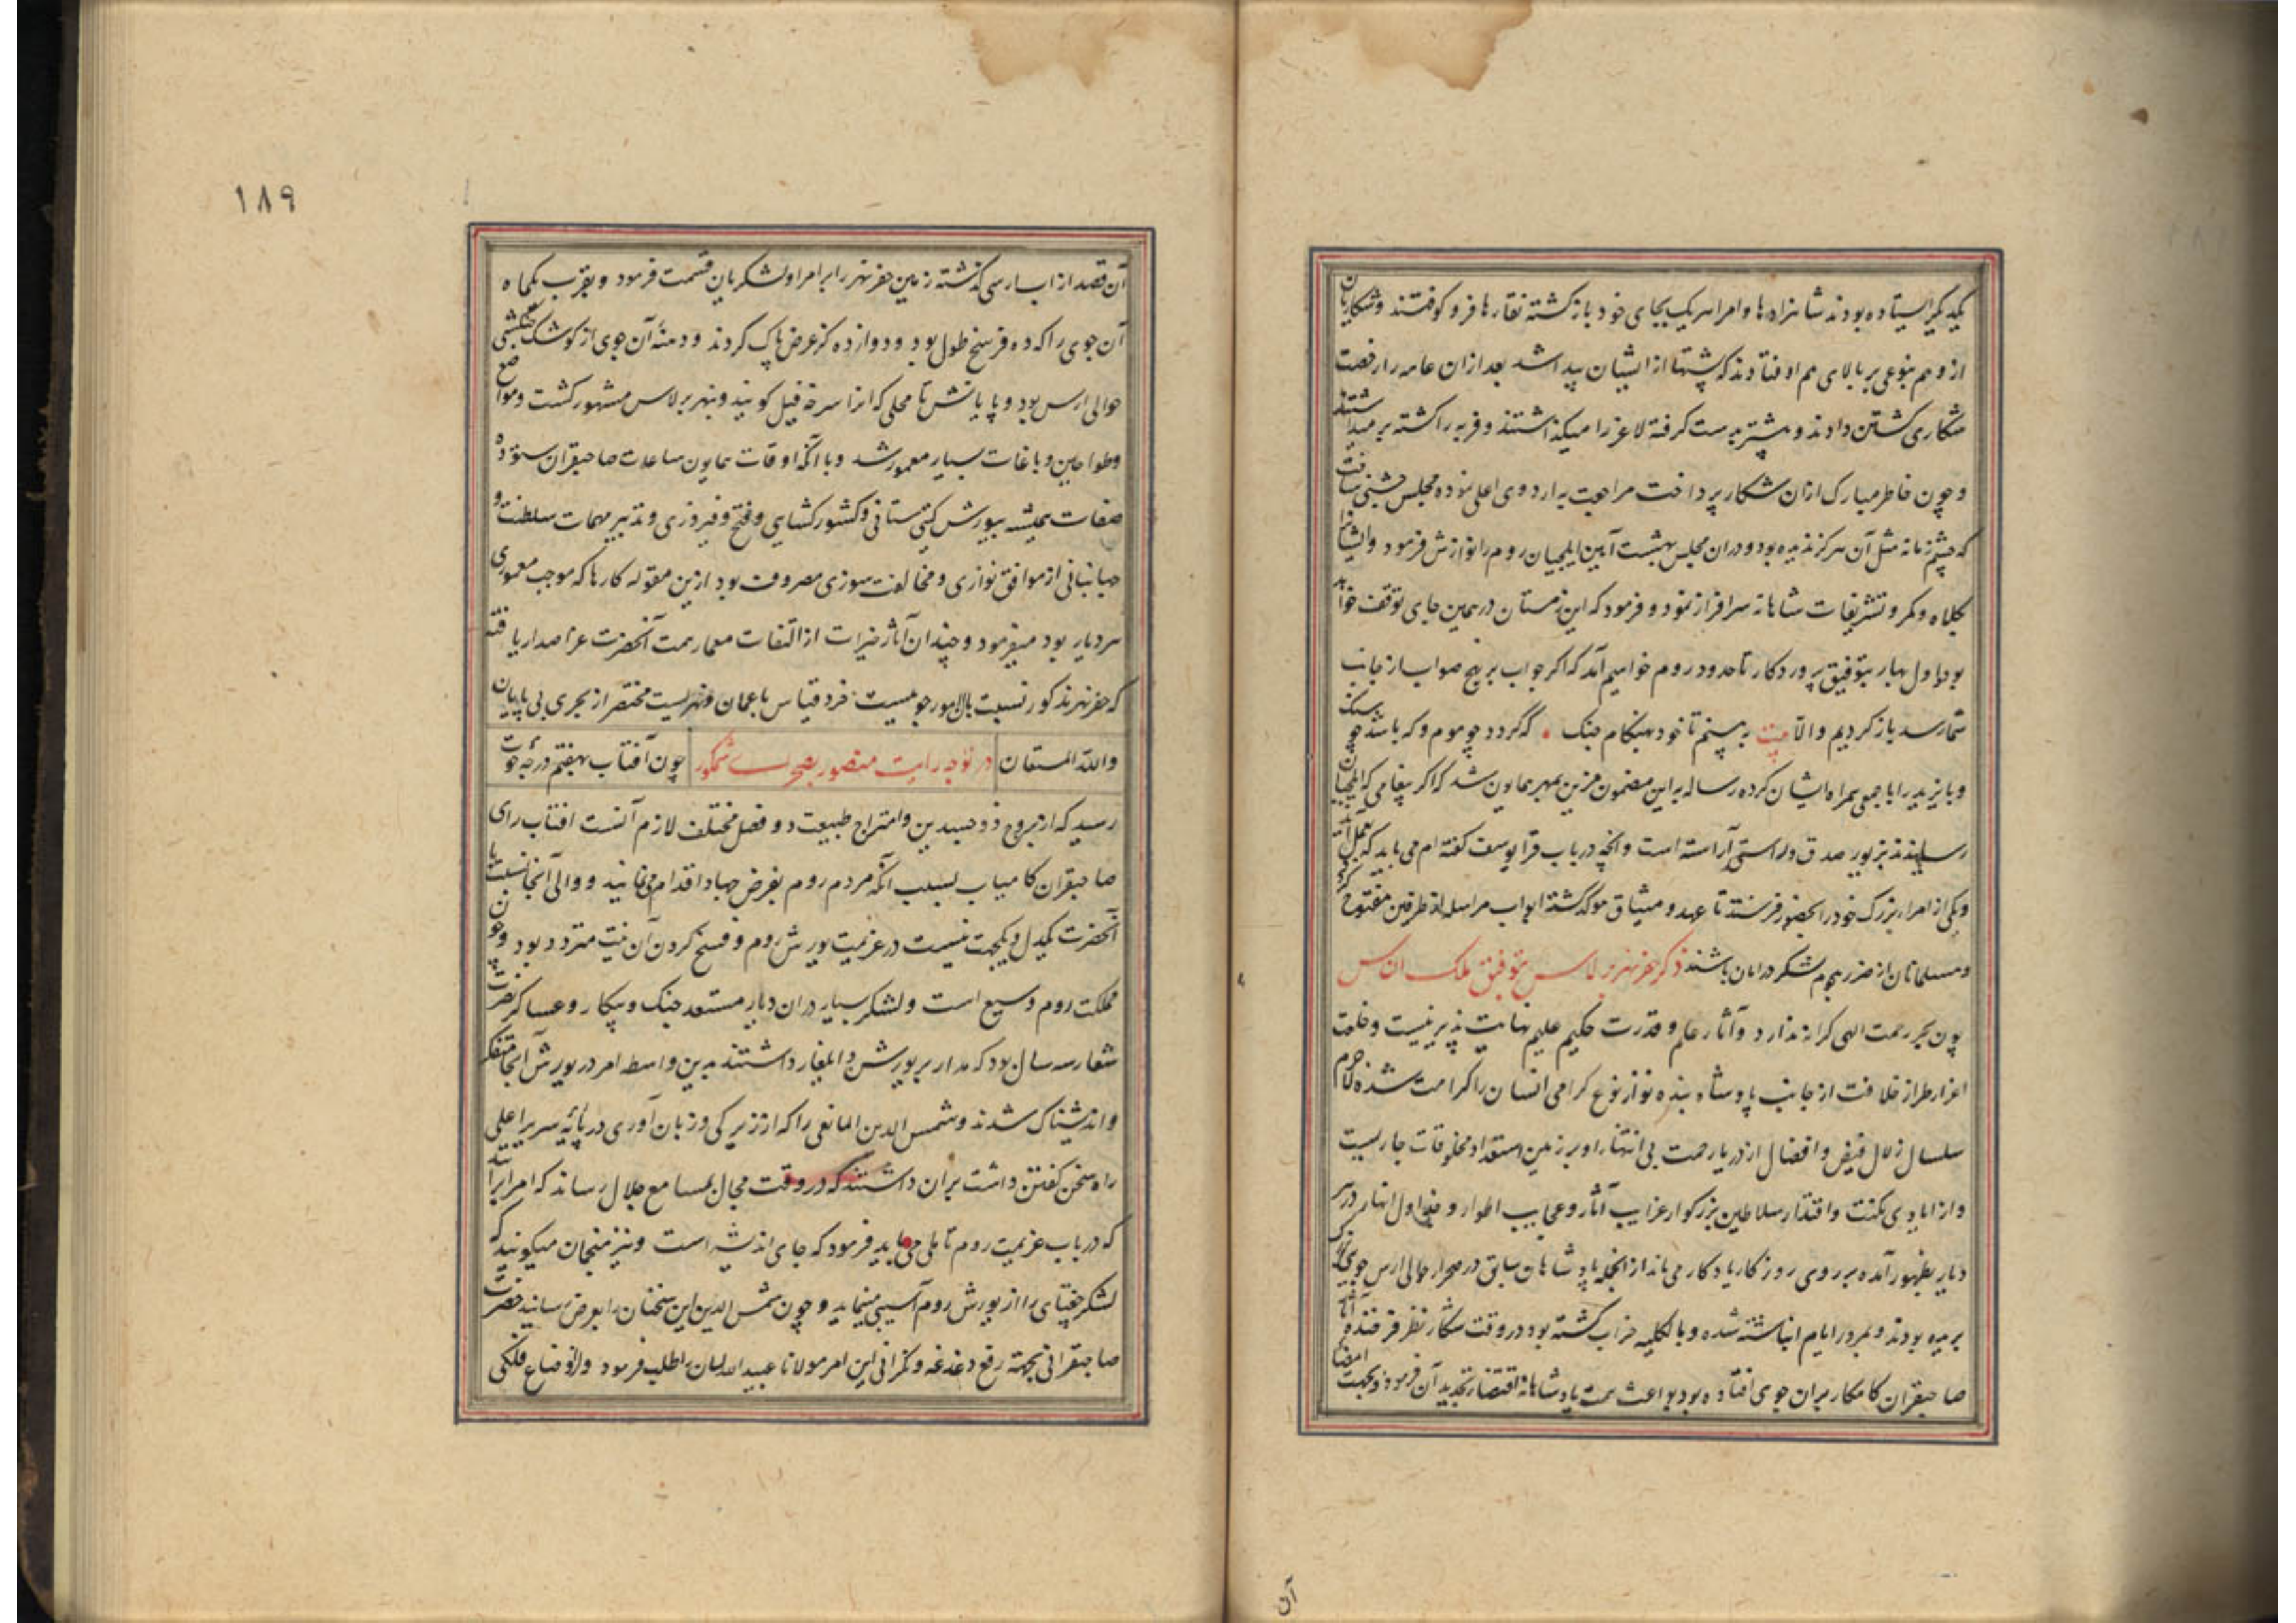 یکدیگر ایستاده بودند شاهزادها و امرا هریک بجای خود باز کشته نقارها فرو کوفتند و شکاریان
از وهم بنوعی بر بالای هم اوفتادند که پشتها از ایشان پیدا شد بعد ازان عامه را رخصت
شکاری کشتن دادند و بیشتر بدست کرفته لاغر را میکذاشتند و فربه را کشته بر میداشتند
و چون خاطر مبارک ازان شکار پرداخت مراجعت به اردوی اعلی نموده مجلس جشنی ساخت
که چشم زمانه مثل آن هرکز ندیده بود و دران مجلس بهشت آیین ایلچیان روم را نوازش فرمود و ایشانرا
بکلاه و کمر و تشریفات شاهانه سرافراز نمود و فرمود که این زمستان در همین جای توقف خواهد
بود اول بهار بتوفیق پروردکار تا حدود روم خواهیم آمد که اکر جواب بر نهج صواب از جانب
شما رسد باز کردیم و الا بیت به بینم تا خود بهنکام جنک که کردد چو موم و که باشد چو سنک
و بایزید را با جمعی همراه ایشان کرده رساله به این مضمون مزین بمهر همایون شد که اکر پیغامی که ایلچیان
رسانیدند بزیور صدق و راستی آراسته است و انچه در باب قرا یوسف کفته ام می باید که بعمل آید
و یکی از امراء بزرک خود را بحضور فرستد تا عهد و میثاق موکد کشته ابواب مراسله از طرفین مفتوح کردد
و مسلمانان از ضرر هجوم لشکر در امان باشند ذکر حفر نهر برلاس بتوفیق ملک الناس
چون بحر رحمت الهی کرانه ندارد و آثار علم و قدرت حکیم علیم نهایت پذیر نیست و خلعت
اعزاز طراز خلافت از جانب پادشاه بنده نواز نوع کرامی انسان را کرامت شده لاجرم
سلسال زلال فیض و افضال از دریا رحمت بی انتهاء او بر زمین استعداد مخلوقات جاریست
و از ایادی مکنت و اقتدار سلاطین بزرکوار غرایب آثار و عجایب اطوار و جداول انهار در هر
دیار بظهور آمده بر روی روزکار یادکار می ماند از انجمله پادشاهان سابق در صحراء حوالی ارس جویی بزرک
بریده بودند و بمرور ایام انباشته شده و بالکلیه خراب کشته بود در وقت شکار نظر فرخنده آثار
صاحبقران کامکار بران جوی افتاده بود بواعث همت پادشاهانه اقتضاء تجدید آن فرمود و بجهت امضا
آن
۱۸۹
آن قصد از اب ارس کذشته زمین حفر نهر را بر امرا و لشکریان قسمت فرمود و بقرب یکماه
آن جوی را که ده فرسخ طول بود و دوازده کز عرض پاک کردند و دهنهٔ آن جوی از کوشک جنکشی
حوالی ارس بود و پایانش تا محلی که انرا سرخه فیل کویند و بنهر برلاس مشهور کشت و مواضع
و طواحین و باغات بسیار معمور شد و با انکه اوقات همایون ساعات صاحبقران ستوده
صفات همیشه بیورش کیتی ستانی و کشورکشایی و فتح و فیروزی و تدبیر مهمات سلطنت و
جهانبانی از موافق نوازی و مخالفت سوزی مصروف بود ازین مقوله کارها که موجب معموری
هر دیار بود میفرمود و چندان آثار خیرات از التفات معمار همت آنحضرت عز اصدار یافته
که حفر نهر مذکور نسبت بالامور جوئیست خرد قیاس با عمان و نهریست مختصر از بحری بی پایان
والله المستعان در توجه رایت منصور بصحرای شمکور چون آفتاب بهفتم درجهٔ حوت
رسید که از بروج ذو جسدین و امتزاج طبیعت دو فصل مختلف لازم آنست افتاب رای
صاحبقران کامیاب بسبب انکه مردم روم بغرض جهاد اقدام می نمایند و والی آنجا نسبت با
آنحضرت یکدل و یکجهت نیست در عزیمت یورش روم و فسخ کردن آن نیت متردد بود و چون
مملکت روم وسیع است و لشکر بسیار دران دیار مستعد جنک و پیکار و عساکر نصرت
شعار سه سال بود که مدار بر یورش و ایلغار داشتند بدین واسطه امر در یورش آنجا متفکر
و اندیشناک شدند و شمس الدین المالغی را که از زیرکی و زبان آوری در پایه سریر اعلی
راه سخن کفتن داشت بران داشتند که در وقت مجال بمسامع جلال رساند که امرا برآنند
که در باب عزیمت روم تاملی می باید فرمود که جای اندیشه است و نیز منجمان میکویند که
لشکر جغتای را از یورش روم آسیبی مینماید و چون شمس الدین این سخنان را بعرض رسانید حضرت
صاحبقرانی بجهته رفع دغدغه و نکرانی این امر مولانا عبید الله لسان را طلب فرمود و از اوضاع فلکی